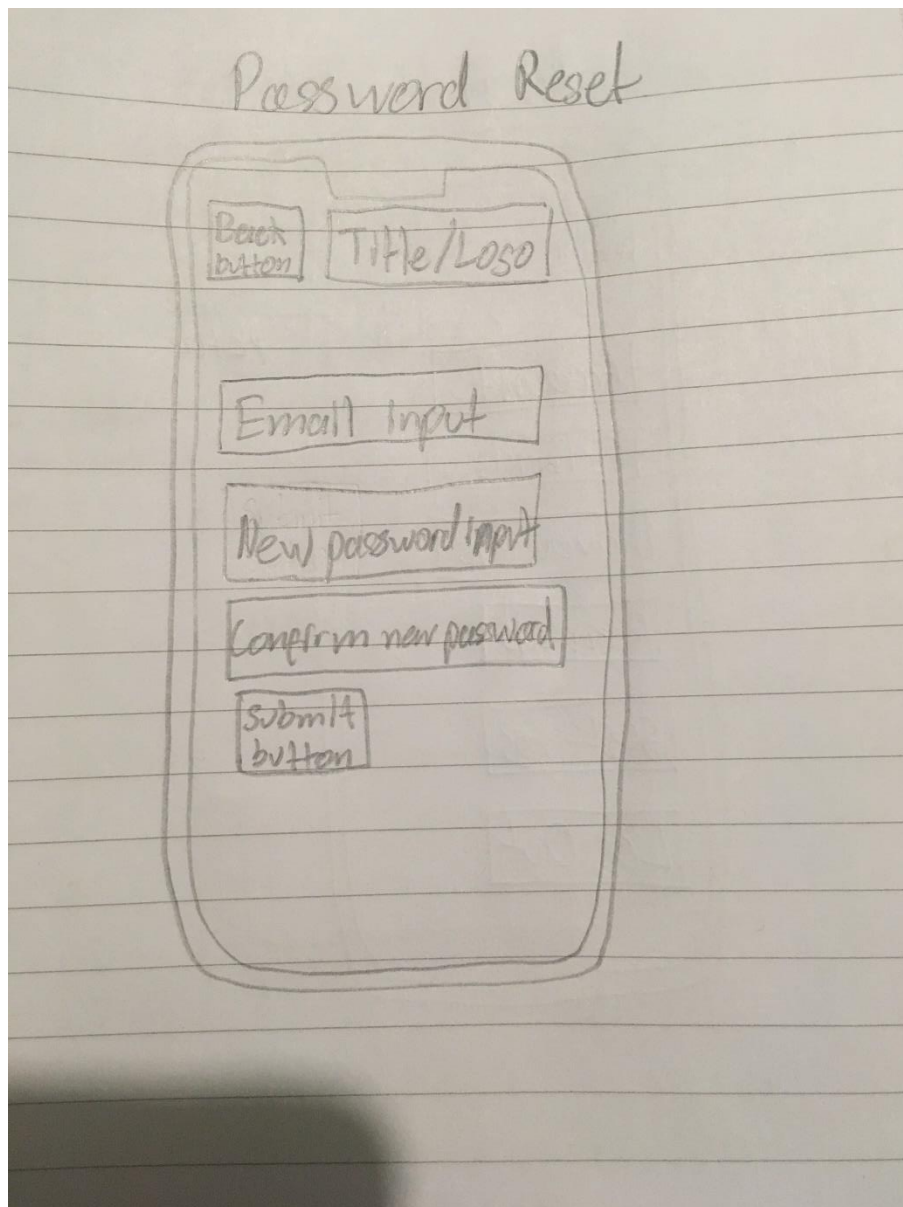 Password Reset
Back
button
Title/Logo
Email input
New password input
Confirm new password
Submit
button